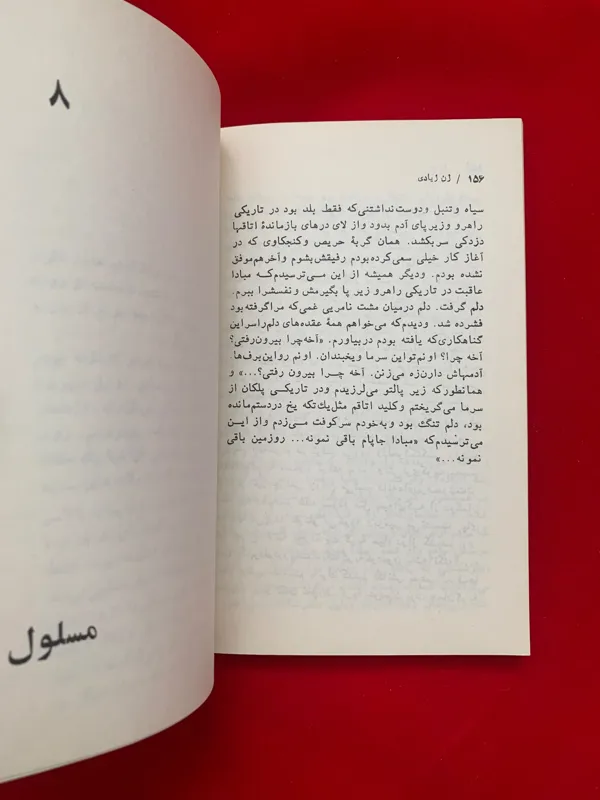 ۱۵۶ / زن زیادی
سیاه و تنبل و دوست نداشتنی که فقط بلد بود در تاریکی
راهرو وزیر پای آدم بدود و از لای درهای بازماندهٔ اتاقها
دزدکی سر بکشد. همان گربهٔ حریص و کنجکاوی که در
آغاز کار خیلی سعی کرده بودم رفیقش بشوم و آخر هم موفق
نشده بودم. و دیگر همیشه از این می‌ترسیدم که مبادا
عاقبت در تاریکی راهرو زیر پا بگیرمش و نفسش را ببرم.
دلم گرفت. دلم در میان مشت نامریی غمی که مرا گرفته بود
فشرده شد. و دیدم که می‌خواهم همهٔ عقده‌های دلم را سر این
گناهکاری که یافته بودم در بیاورم. «آخه چرا بیرون رفتی؟
آخه چرا؟ او نم تو این سرما و یخبندان. او نم رو این برف‌ها.
آدمهاش دارن زه می‌زنن. آخه چرا بیرون رفتی؟...» و
همانطور که زیر پالتو می‌لرزیدم و در تاریکی پلکان از
سرما می‌گریختم و کلید اتاقم مثل یك تکه یخ در دستم مانده
بود، دلم تنگ بود و به خودم سرکوفت می‌زدم و از این
می‌ترسیدم که «مبادا جاپام باقی نمونه... رو زمین باقی
نمونه...»
۸
مسلول